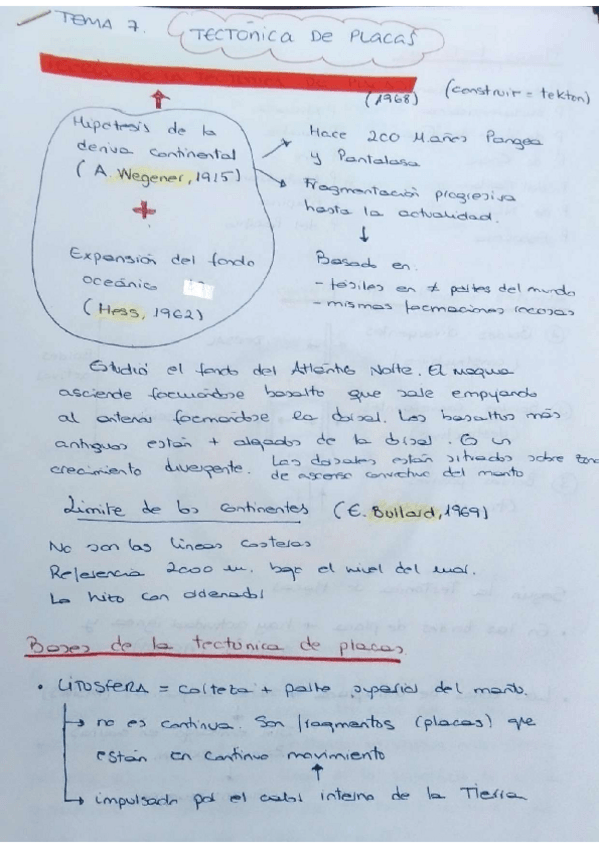 TEMA 7.
TECTÓNICA DE PLACAS
TEORÍA DE LA TECTÓNICA DE PLACAS
(1968)
(construir = tekton)
Hipótesis de la
deriva continental
(A. Wegener, 1915)
+
Expansión del fondo
oceánico
(Hess, 1962)
Hace 200 M.años Pangea
y Pantalasa
Fragmentación progresiva
hasta la actualidad.
Basado en.
- fósiles en ≠ partes del mundo
- mismas formaciones rocosas
Estudió el fondo del Atlántico Norte. El magma
asciende formándose basalto que sale empujando
al anterior formándose la dorsal. Los basaltos más
antiguos están + alejados de la dorsal. Es un
crecimiento divergente. Las dorsales están situadas sobre zonas
de ascenso convectivo del manto
Límite de los continentes (E. Bullard, 1969)
No son las líneas costeras
Referencia 2000 m. bajo el nivel del mar.
Lo hizo con ordenador
Bases de la tectónica de placas
• LITOSFERA = corteza + parte superior del manto.
→ no es continua. Son fragmentos (placas) que
están en continuo movimiento
→ impulsado por el calor interno de la Tierra